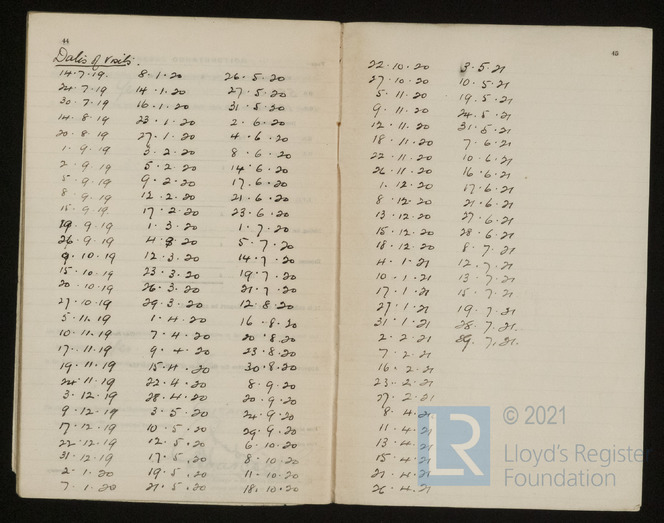 44
Dates of visits.
14.7.19.
24.7.19
30.7.19
14.8.19
20.8.19
1.9.19
2.9.19
5.9.19
8.9.19
15.9.19.
19.9.19
26.9.19
9.10.19
15.10.19
20.10.19
27.10.19
5.11.19
10.11.19
17.11.19
19.11.19
24.11.19
3.12.19
9.12.19
17.12.19
22.12.19
31.12.19
2.1.20
7.1.20
8.1.20
14.1.20
16.1.20
23.1.20
27.1.20
3.2.20
5.2.20
9.2.20
12.2.20
17.2.20
1.3.20
4.3.20
12.3.20
23.3.20
26.3.20
29.3.20
1.4.20
7.4.20
9.4.20
15.4.20
22.4.20
28.4.20
3.5.20
10.5.20
12.5.20
17.5.20
19.5.20
21.5.20
26.5.20
27.5.20
31.5.20
2.6.20
4.6.20
8.6.20
14.6.20
17.6.20
21.6.20
23.6.20
1.7.20
5.7.20
14.7.20
19.7.20
21.7.20
12.8.20
16.8.20
20.8.20
23.8.20
30.8.20
8.9.20
20.9.20
24.9.20
29.9.20
6.10.20
8.10.20
11.10.20
18.10.20
45
22.10.20
27.10.20
5.11.20
9.11.20
12.11.20
18.11.20
22.11.20
26.11.20
1.12.20
8.12.20
13.12.20
15.12.20
18.12.20
4.1.21
10.1.21
17.1.21
27.1.21
31.1.21
2.2.21
7.2.21
16.2.21
23.2.21
27.2.21
8.4.21
11.4.21
13.4.21
15.4.21
21.4.21
26.4.21
3.5.21
10.5.21
19.5.21
24.5.21
31.5.21
7.6.21
10.6.21
16.6.21
17.6.21
21.6.21
27.6.21
28.6.21
8.7.21
12.7.21
13.7.21
15.7.21
19.7.21
28.7.21.
29.7.21.
LR
© 2021
Lloyd's Register
Foundation